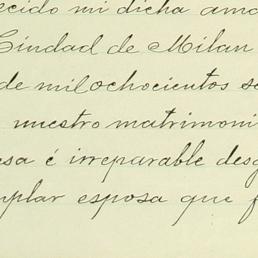 ecido mi dicha ama
Ciudad de Milan
de milochocientos se
nuestro matrimoni
esa é irreparable desg
mplar esposa que f